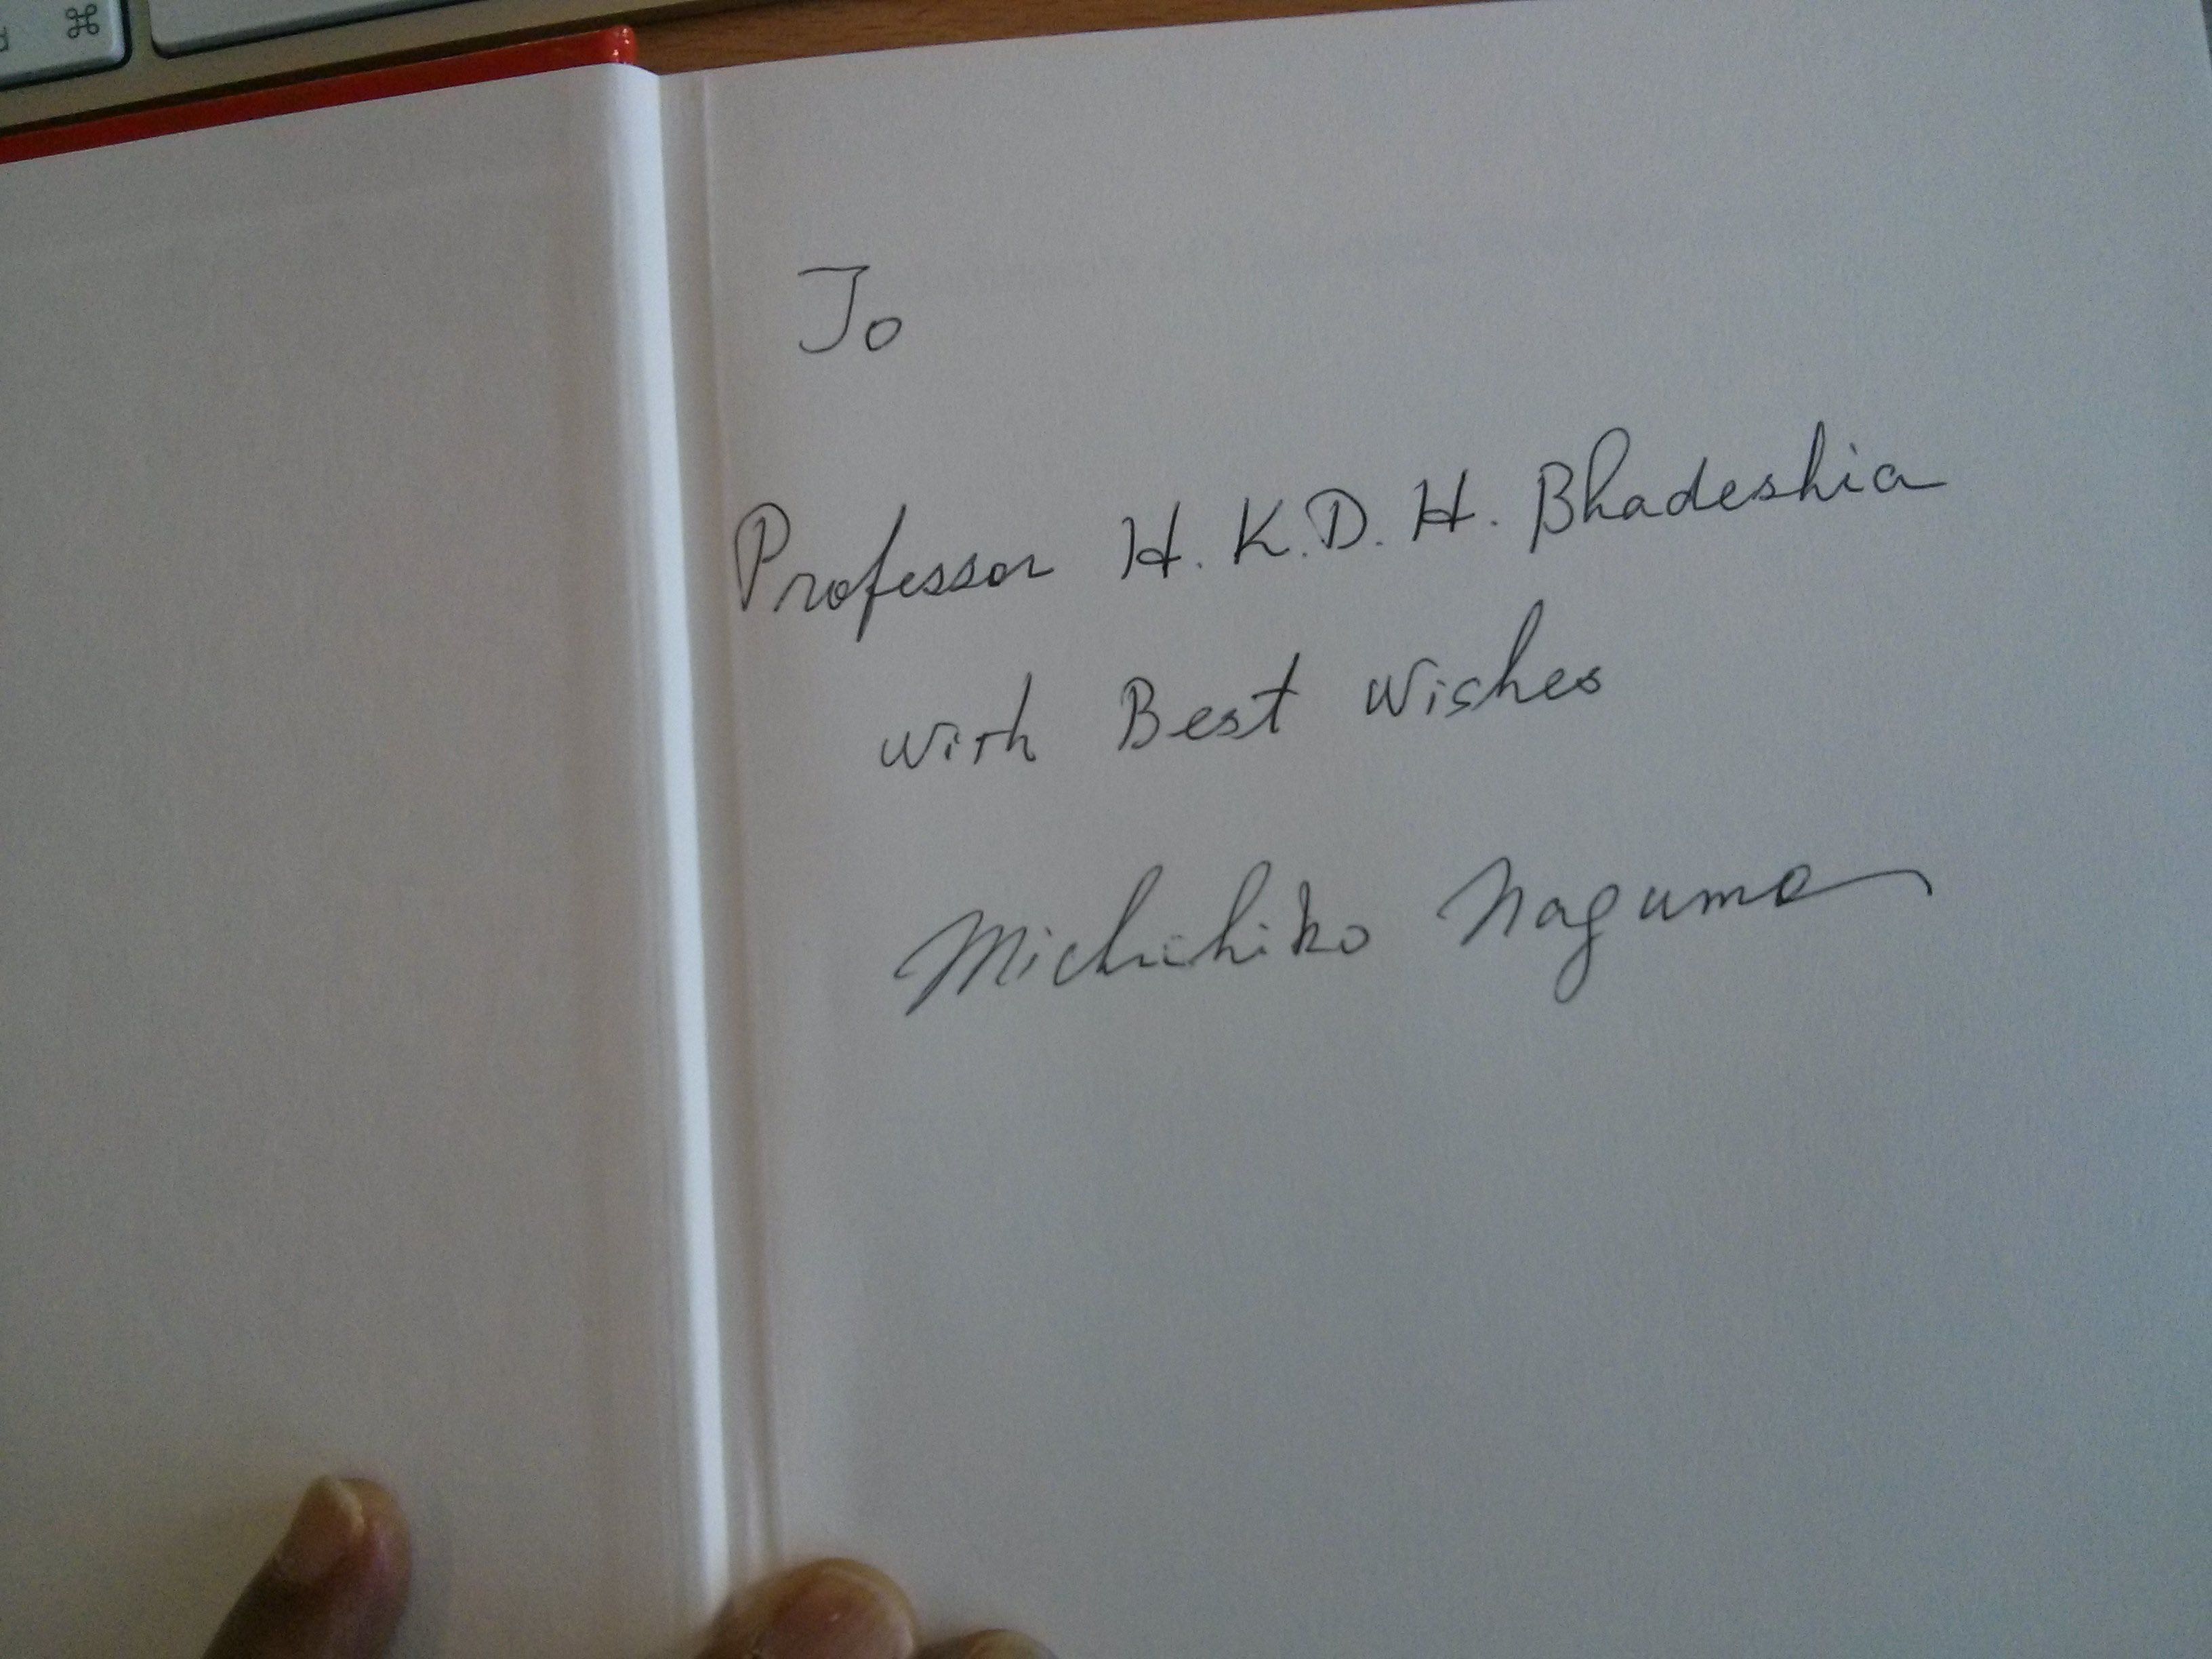 ⌘
To
Professor H. K. D. H. Bhadeshia
with Best Wishes
Michihiko Nagumo